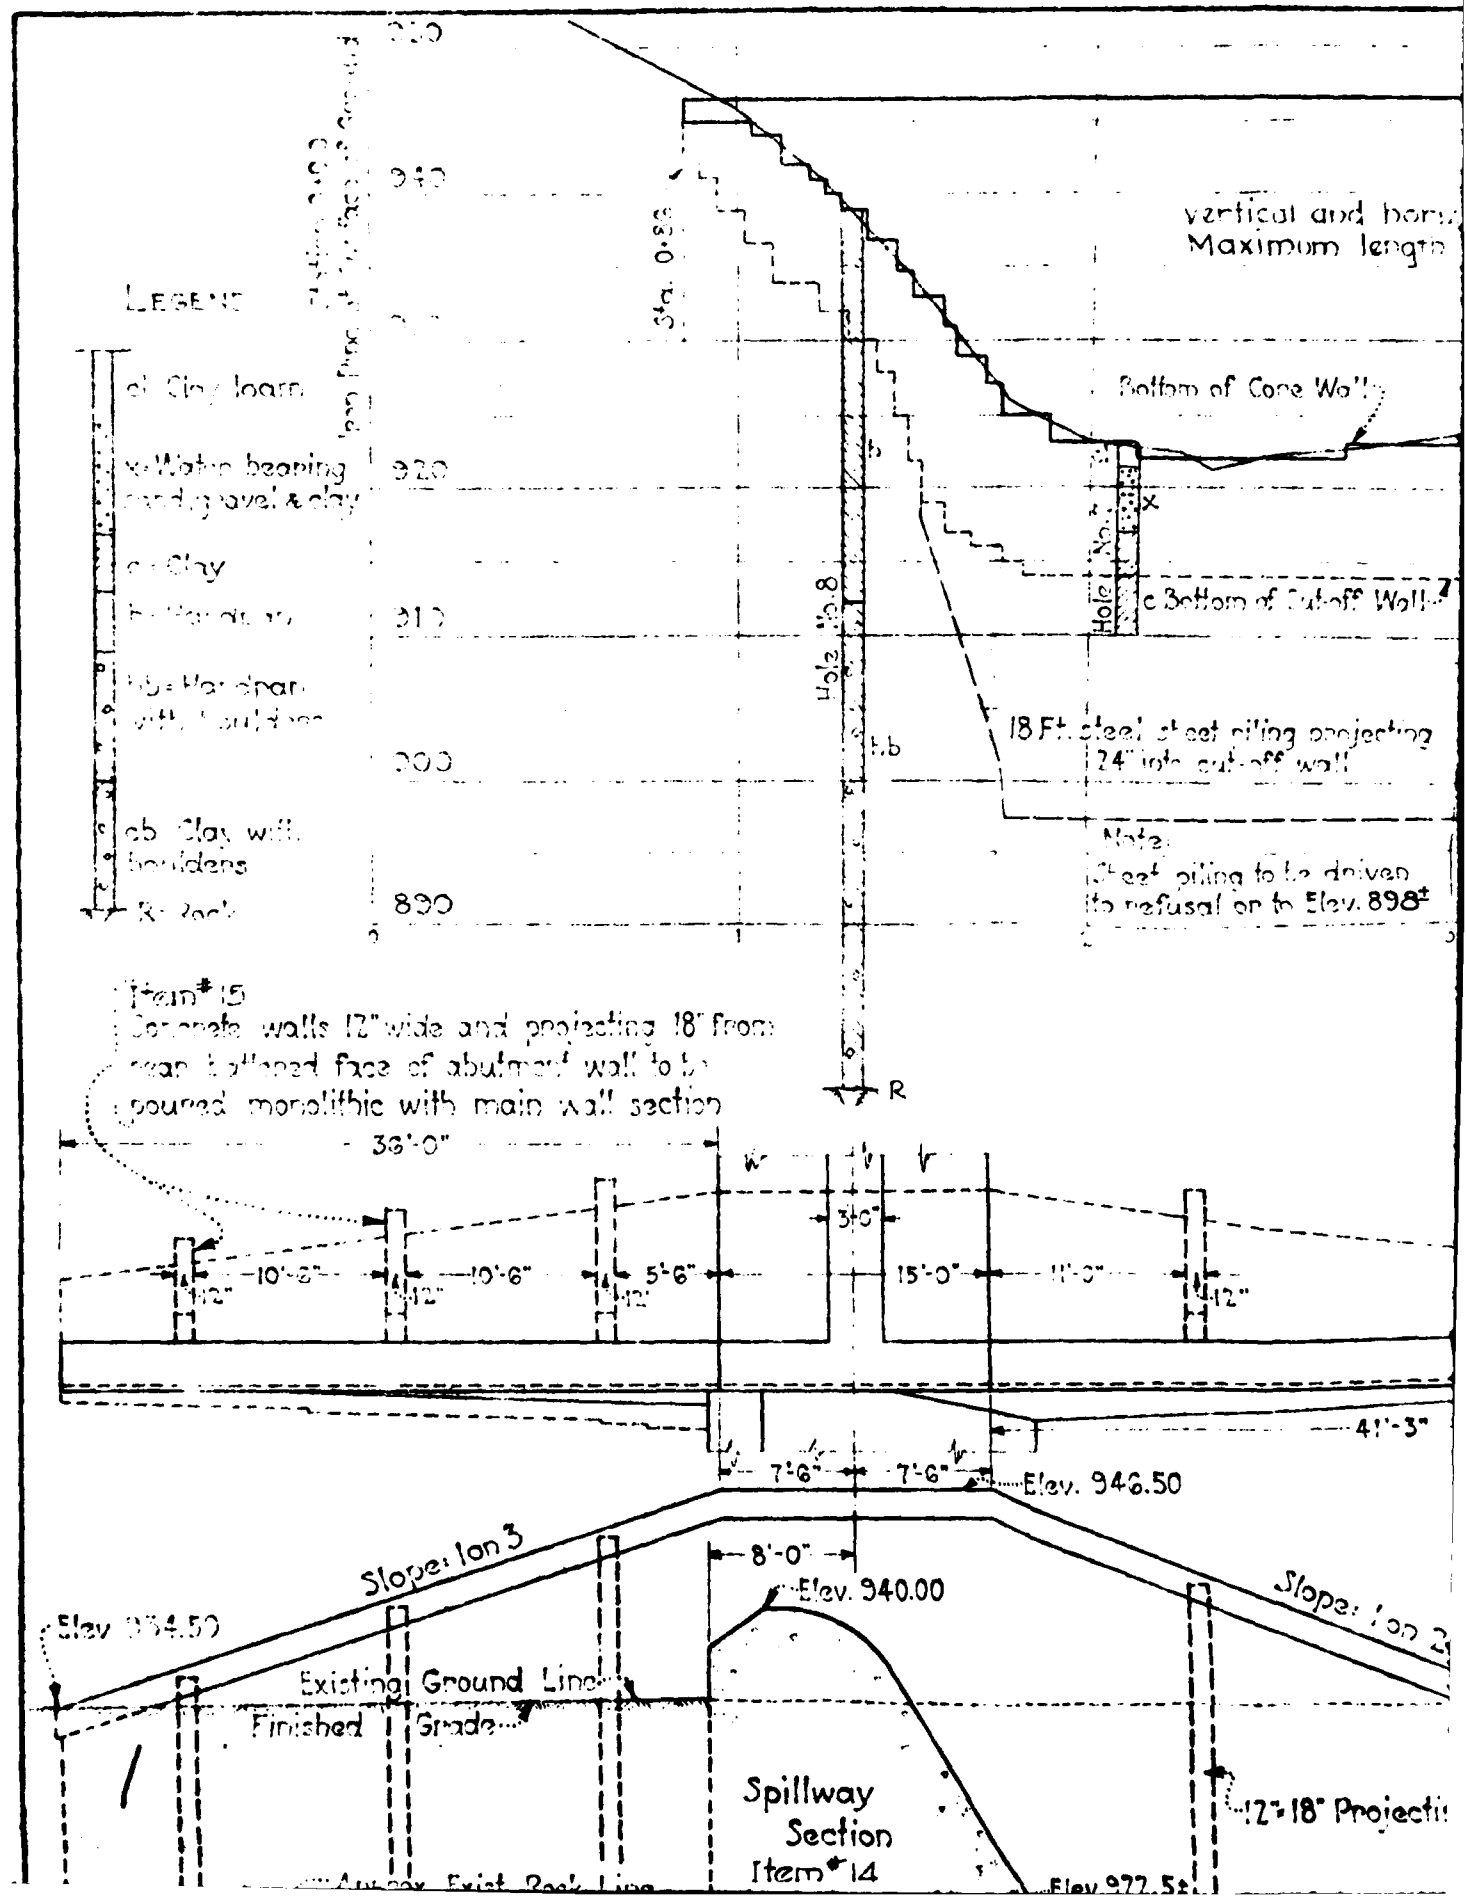 940
920
910
900
890
Sta. 0+88
vertical and
Maximum length
LEGEND
cl Clay loam
x=Water bearing
sand, gravel & clay
c=Clay
h=Hardpan
hb=Hardpan
with boulders
cb Clay with
boulders
R=Rock
Bottom of Core Wall
h
x
Hole No.
Hole No. 8
c Bottom of Cut-off Wall
hb
18 Ft. steel sheet piling projecting
24" into cut-off wall
Note:
Sheet piling to be driven
to refusal or to Elev. 898±
1
2
R
Item #15
Concrete walls 12" wide and projecting 18" from
rear battered face of abutment wall to be
poured monolithic with main wall section
36'-0"
3'-0"
10'-6"
10'-6"
5'-6"
15'-0"
11'-0"
12"
12"
12"
12"
41'-3"
7'-6"
7'-6"
Elev. 946.50
8'-0"
Slope: 1 on 3
Elev. 940.00
Slope: 1 on 2
Elev. 934.50
Existing Ground Line
Finished Grade
12"×18"
Spillway
Section
Item #14
Approx Exist Rock Line